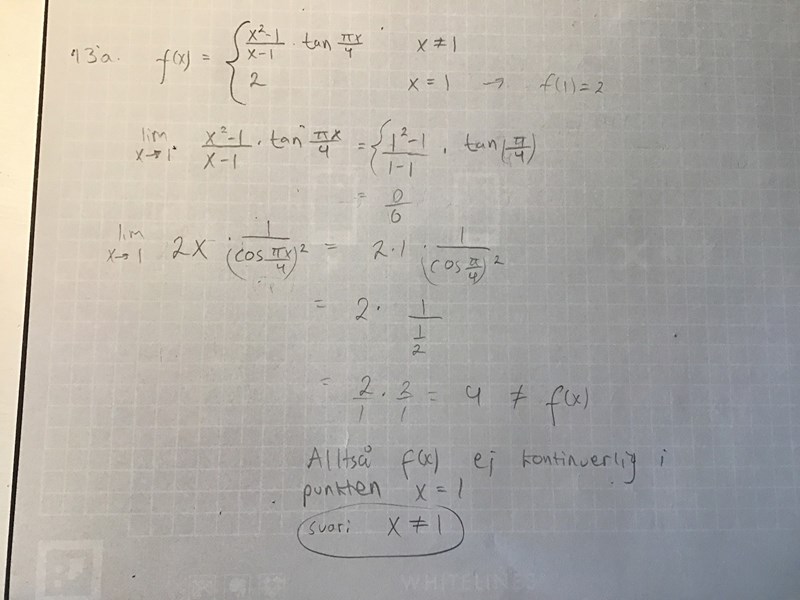 13a. f(x) = { x²-1/x-1 · tan πx/4 x ≠ 1
2 x = 1 → f(1) = 2
lim x→1 x²-1/x-1 · tan πx/4 = { 1²-1/1-1 · tan(π/4)
= 0/0
lim x→1 2x · 1/(cos πx/4)² = 2·1 · 1/(cos π/4)²
= 2 · 1/(1/2)
= 2/1 · 2/1 = 4 ≠ f(x)
Alltså f(x) ej kontinuerlig i
punkten x = 1
svar: x ≠ 1
WHITELINES